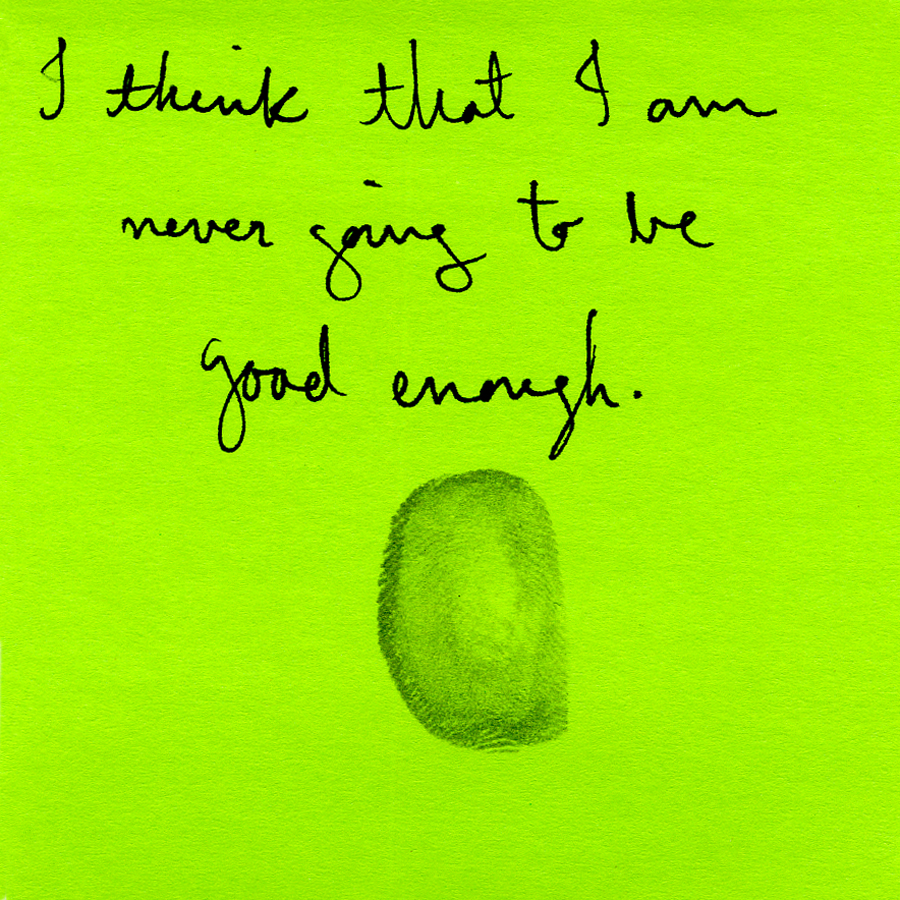 I think that I am
never going to be
good enough.